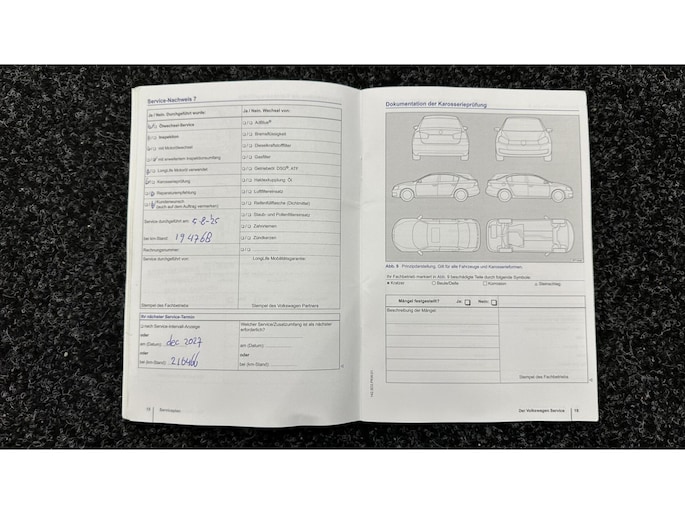 Service-Nachweis 7
Ja / Nein. Durchgeführt wurde:
Ölwechsel-Service
Inspektion
mit Motorölwechsel
mit erweitertem Inspektionsumfang
LongLife Motoröl verwendet
Karosserieprüfung
Reparaturempfehlung
Kundenwunsch
(auch auf dem Auftrag vermerken)
Service durchgeführt am: 5-8-25
bei km-Stand: 194768
Rechnungsnummer:
Service durchgeführt von:
Stempel des Fachbetriebs
Ja / Nein. Wechsel von:
AdBlue®
Bremsflüssigkeit
Dieselkraftstofffilter
Gasfilter
Getriebeöl: DSG®, ATF
Haldexkupplung: Öl
Luftfiltereinsatz
Reifenfüllflasche (Dichtmittel)
Staub- und Pollenfiltereinsatz
Zahnriemen
Zündkerzen
LongLife Mobilitätsgarantie:
Stempel des Volkswagen Partners
Ihr nächster Service-Termin
nach Service-Intervall-Anzeige
oder
am (Datum): dec 2027
oder
bei (km-Stand):
Welcher Service/Zusatzumfang ist als nächster
erforderlich?
am (Datum):
oder
bei (km-Stand):
18 Serviceplan
Dokumentation der Karosserieprüfung
Abb. 9 Prinzipdarstellung: Gilt für alle Fahrzeuge und Karosserieformen.
Ihr Fachbetrieb markiert in Abb. 9 beschädigte Teile durch folgende Symbole:
Kratzer Beule/Delle Korrosion Steinschlag
Mängel festgestellt? Ja Nein
Beschreibung der Mängel:
Stempel des Fachbetriebs
Der Volkswagen Service 19